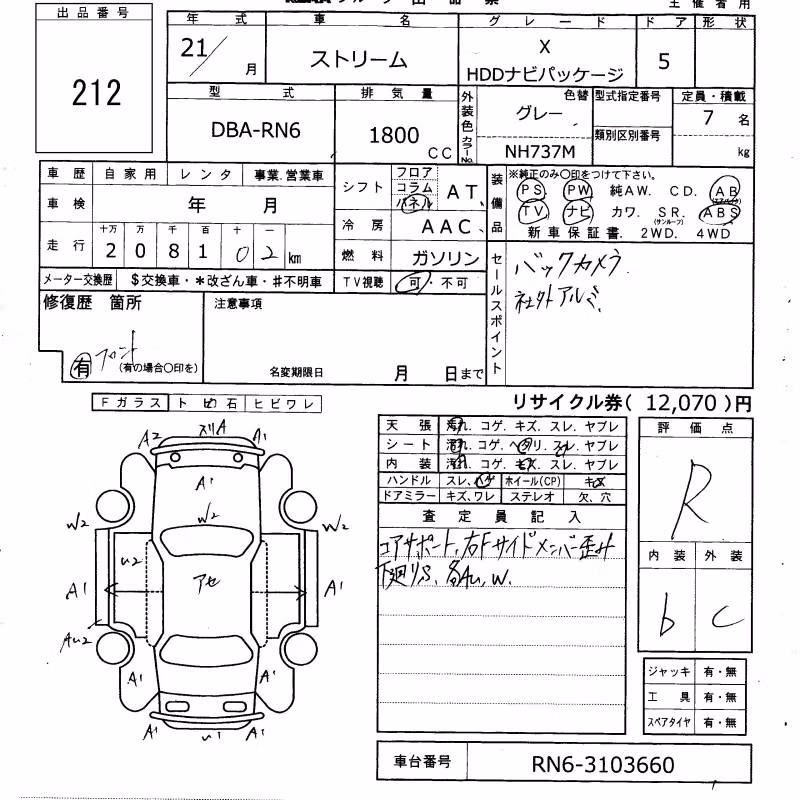 主催者用
出品番号
212
年式 車名 グレード ドア 形状
21/ 月 ストリーム X HDDナビパッケージ 5
型式 排気量 外装色 カラーNo. 色替 型式指定番号 定員・積載
DBA-RN6 1800 CC グレー 7名
NH737M 類別区別番号 kg
車歴 自家用 レンタ 事業.営業車
車検 年 月
走行 十万 万 千 百 十 一
2 0 8 1 0 2 km
メーター交換歴 $交換車・*改ざん車・#不明車
シフト フロア コラム パネル AT、
冷房 AAC、
燃料 ガソリン
TV視聴 可・不可
装備品 ※純正のみ〇印をつけて下さい。
PS PW 純AW. CD. AB(エアバック)
TV ナビ カワ. SR.(サンルーフ) ABS
新車保証書. 2WD. 4WD
セールスポイント
バックカメラ
社外アルミ、
修復歴 箇所
有 フロント (有の場合〇印を)
注意事項
名変期限日 月 日まで
リサイクル券( 12,070 )円
Fガラス トビ石 ヒビワレ
A2 スリA A1
A1
W2 W2 W2
U2
A1 アセ A1
AU2
A1 A1
A1 U1 A1
天張 汚れ. コゲ. キズ. スレ. ヤブレ
シート 汚れ. コゲ. ヘタリ. スレ. ヤブレ
内装 汚れ. コゲ. キズ. スレ. ヤブレ
ハンドル スレ、ハゲ ホイール(CP) キズ
ドアミラー キズ、ワレ ステレオ 欠、穴
査定員記入
コアサポート、右Fサイドメンバー歪み
下廻りS、各AU、W.
評価点
R
内装 外装
b C
ジャッキ 有・無
工具 有・無
スペアタイヤ 有・無
車台番号 RN6-3103660